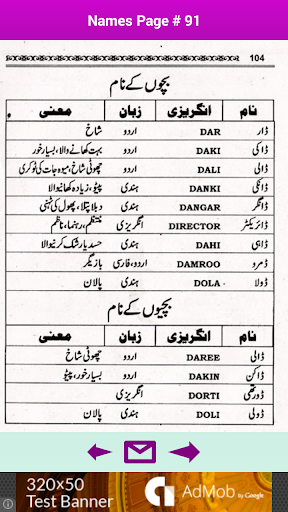 Names Page # 91
104
بچوں کے نام
نام انگریزی زبان معنی
ڈار DAR اردو شاخ
ڈاکی DAKI اردو بہت کھانے والا، بسیار خور
ڈالی DALI اردو چھوٹی شاخ، میوہ جات کی ٹوکری
ڈانگی DANKI ہندی پیٹو، زیادہ کھانیوالا
ڈانگر DANGAR ہندی دبلا پتلا، پھول کی ٹہنی
ڈائریکٹر DIRECTOR انگریزی منتظم، رہنما، ناظم
ڈاہی DAHI ہندی حسد یا رشک کرنیوالا
ڈمرو DAMROO اردو، فارسی بازیگر
ڈولا DOLA ہندی پالان
بچیوں کے نام
نام انگریزی زبان معنی
ڈالی DAREE اردو چھوٹی شاخ
ڈاکن DAKIN اردو بسیار خور، پیٹو
ڈورتھی DORTI انگریزی
ڈولی DOLI ہندی پالان
320x50
Test Banner
AdMob by Google